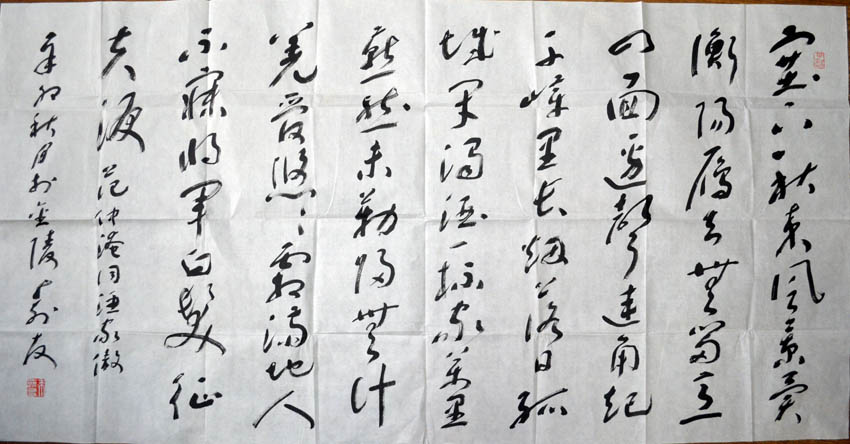 塞下秋來風景異
衡陽雁去無留意
四面邊聲連角起
千嶂里長烟落日孤
城閉濁酒一杯家萬里
燕然未勒歸無計
羌管悠〻霜滿地人
不寐將軍白髮征
夫淚 范仲淹詞漁家傲
辛卯秋月於金陵友